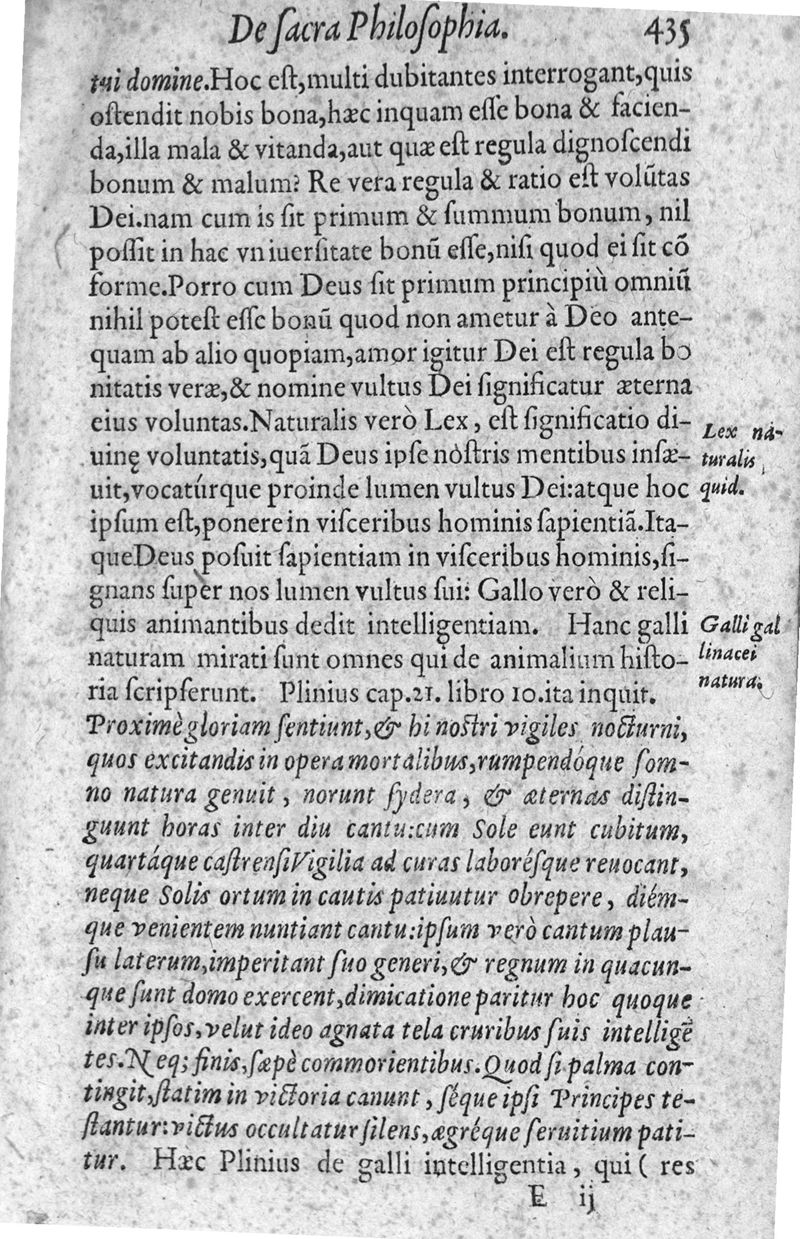 De ſacra Philoſophia. 435
tui domine.Hoc eſt,multi dubitantes interrogant,quis
oſtendit nobis bona,hæc inquam eſſe bona & facien-
da,illa mala & vitanda,aut quæ eſt regula dignoſcendi
bonum & malum? Re vera regula & ratio eſt volũtas
Dei.nam cum is ſit primum & ſummum bonum, nil
poſſit in hac vniuerſitate bonũ eſſe,niſi quod ei ſit cõ
forme.Porro cum Deus ſit primum principiù omniũ
nihil poteſt eſſe bonũ quod non ametur à Deo ante-
quam ab alio quopiam,amor igitur Dei eſt regula bo
nitatis veræ,& nomine vultus Dei ſignificatur æterna
eius voluntas.Naturalis verò Lex, eſt ſignificatio di-
uinę voluntatis,quã Deus ipſe nòſtris mentibus inſæ-
uit,vocatúrque proinde lumen vultus Dei:atque hoc
ipſum eſt,ponere in viſceribus hominis ſapientiã.Ita-
queDeus poſuit ſapientiam in viſceribus hominis,ſi-
gnans ſuper nos lumen vultus ſui: Gallo verò & reli-
quis animantibus dedit intelligentiam. Hanc galli
naturam mirati ſunt omnes qui de animalium hiſto-
ria ſcripſerunt. Plinius cap.21. libro 10.ita inquit.
Proximè gloriam ſentiunt,& hi noſtri vigiles nocturni,
quos excitandis in opera mortalibus,rumpendóque ſom-
no natura genuit, norunt ſydera, & æternas diſtin-
guunt horas inter diu cantu:cum Sole eunt cubitum,
quartáque caſtrenſiVigilia ad curas laboréſque reuocant,
neque Solis ortum in cautis patiuutur obrepere, diém-
que venientem nuntiant cantu:ipſum verò cantum plau-
ſu laterum,imperitant ſuo generi,& regnum in quacun-
que ſunt domo exercent,dimicatione paritur hoc quoque
inter ipſos,velut ideo agnata tela cruribus ſuis intelligẽ
tes.Neq; finis,ſæpè commorientibus.Quod ſi palma con-
tingit,ſtatim in victoria canunt, ſéque ipſi Principes te-
ſtantur:victus occultatur ſilens,ægréque ſeruitium pati-
tur. Hæc Plinius de galli intelligentia, qui ( res
E ij
Lex na-
turalis
quid.
Galli gal
linacei
natura.